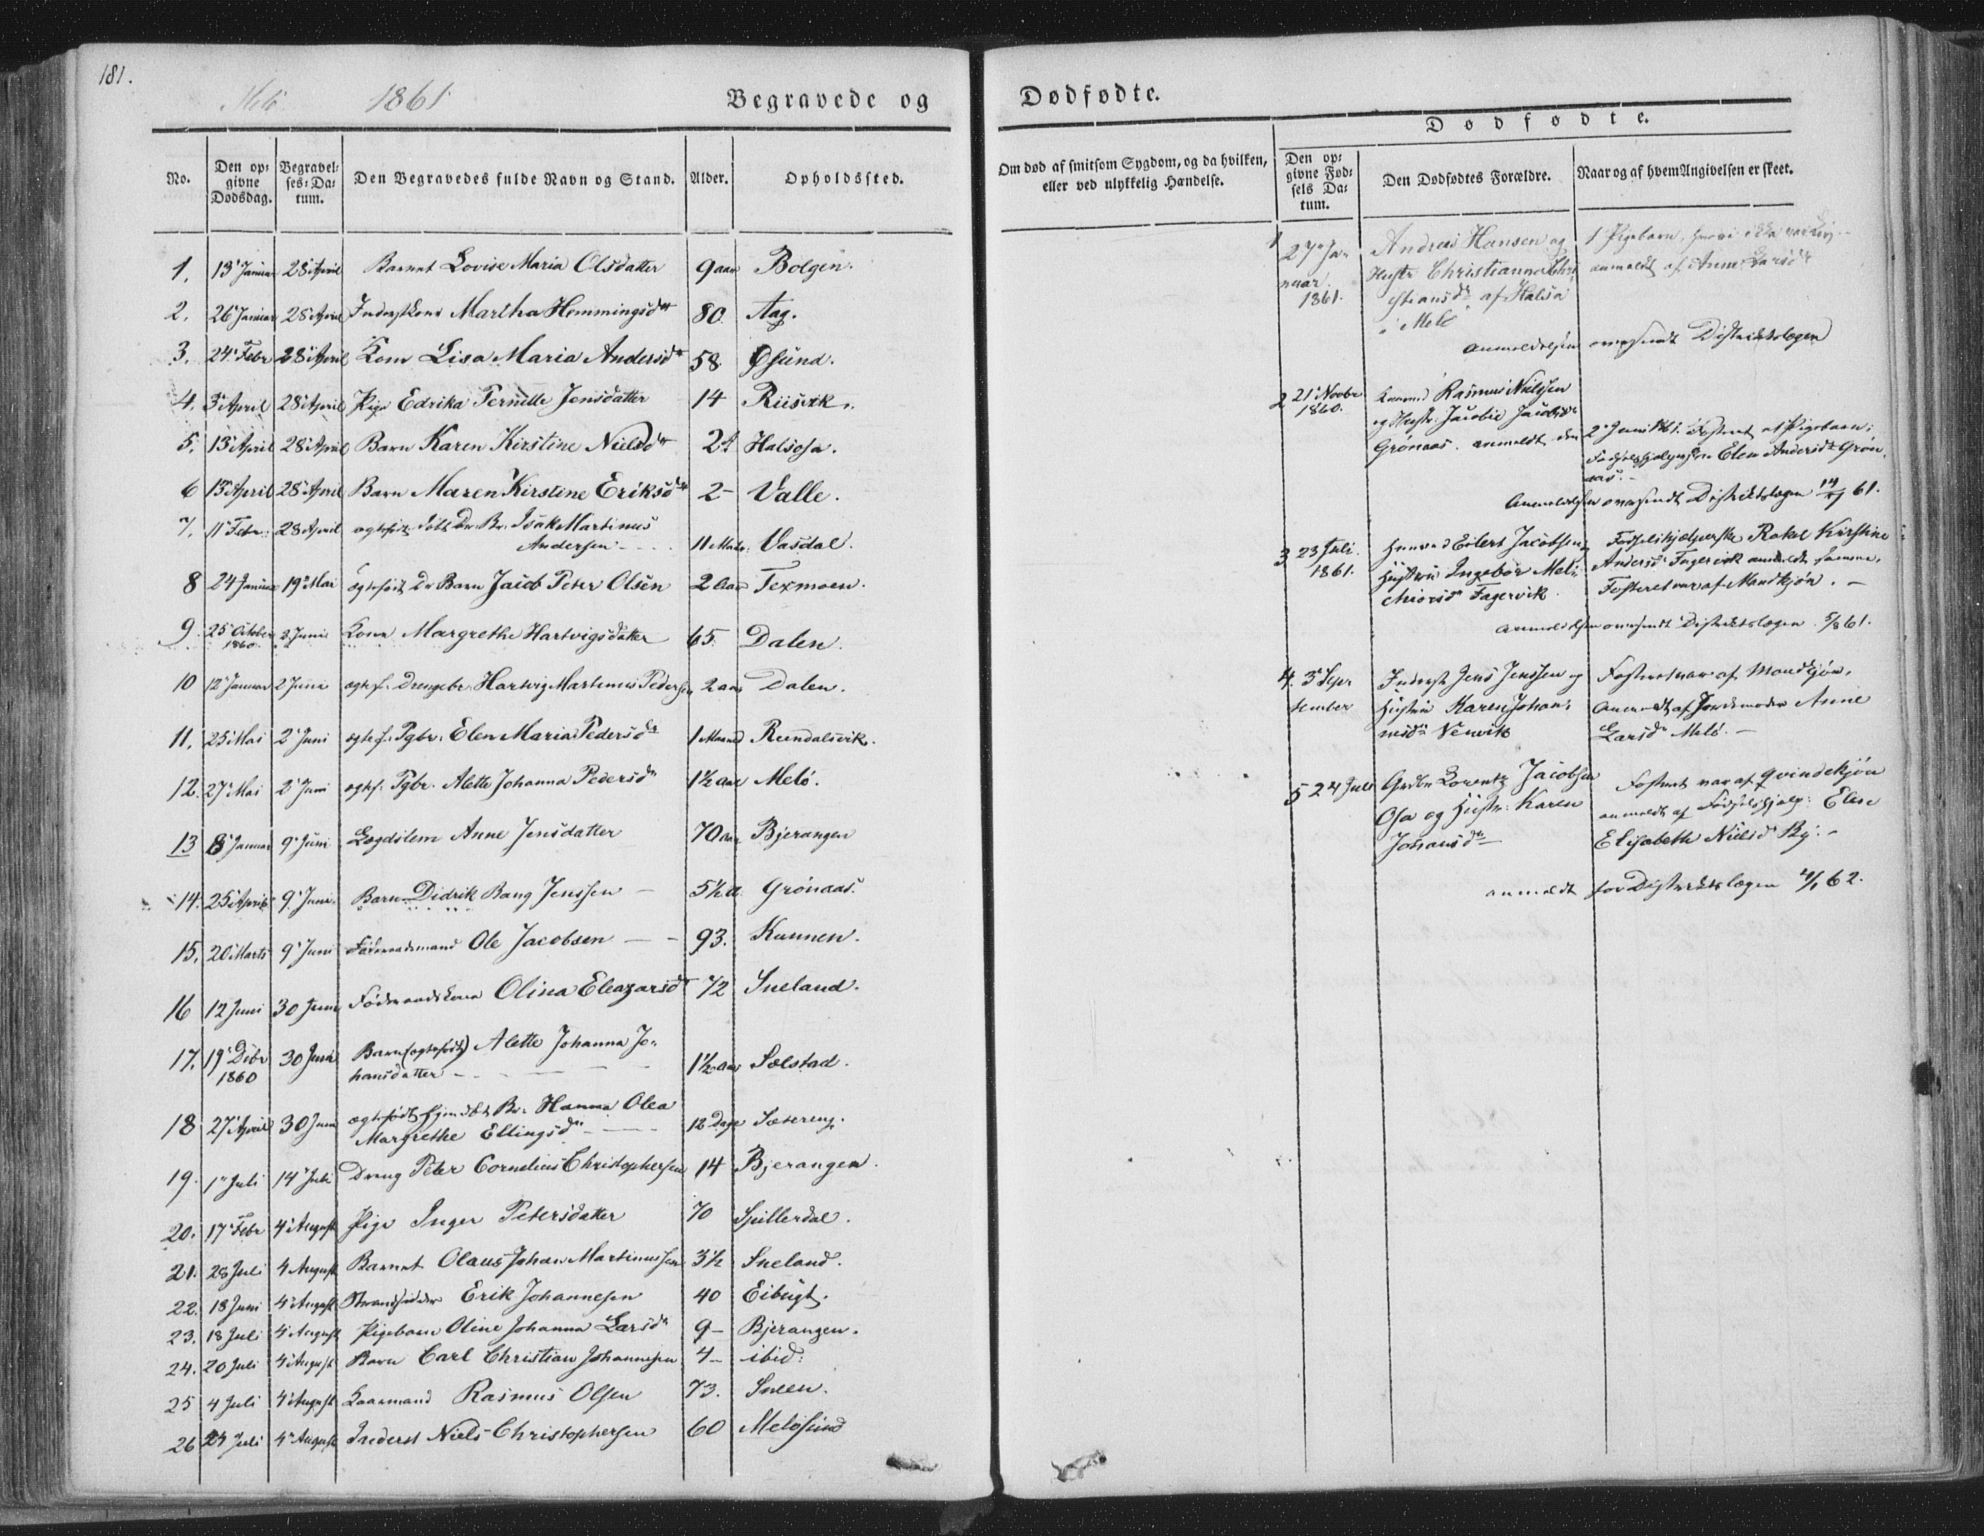 181.
Melö 1861 Begravede og
No. Den op-givne Dødsdag. Begravel-ses-Da-tum. Den Begravedes fulde Navn og Stand. Alder. Opholdssted.
1. 13 Januar 28 April Barnet Lovise Maria Olsdatter 9 aar Bolgen.
2. 26 Januar 28 April Inderstkone Martha Hemmingsdtr 80. Aag.
3. 24 Febr 28 April Kone Lisa Maria Andersdtr 58. Øsund.
4. 3 April 28 April Pige Edrika Pernille Jensdatter 14 Riisvik.
5. 13 April 28 April Barn Karen Kirstine Nielsdtr Halsosa.
6 15 April 28 April Barn Maren Kirstine Eriksdtr 2 – Valle.
7. 11 Febr. 28 April ægtefødt Dr. Br. Isak Martinus
Andersen 11 Mdr. Vasdal.
8 24 Januar 19 Mai ægtefødt Dr Barn Jacob Peter Olsen 2 Aar Texmoen.
9. 25 October 1860. 2 Juni Kone Margrethe Hartvigsdatter 65. Dalen.
10 12 Januar 2 Juni ægtef. Drengebr. Hartvig Martinus Pedersen 2 aar Dalen.
11. 25 Mai 2 Juni ægtef. Pgbr. Elen Maria Pedersdr 1 Maaned Reendalsvik.
12. 27 Mai 2 Juni ægtef. Pgbr. Alette Johanna Pedersdr 1½ aar Melö.
13 8 Januar 9 Juni Lægdslem Anne Jensdatter 70 aar Bjerangen
14. 25 April 9 Juni Barn Didrik Bang Jenssen – 5½ a. Grönaas.
15. 20 Marts 9 Juni Föderaadsmand Ole Jacobsen – – 93. Kunnen.
16 12 Juni 30 Juni Föderaadskone Olina Eleazarsdtr 72 Sneland.
17. 19 Debr 1860 30 Juni Barn (ægtefödt) Alette Johanna Jo-
hansdatter 1½ aar Selstad.
18 27 April 30 Juni ægtefødt Br. Hanna Olea
Margrethe Ellingsdr 12 Dage Sætereng.
19. 1 Juli 14 Juli Dreng Peter Cornelius Christophersen 14 Bjerangen.
20. 17 Febr 4 August Pige Inger Petersdatter 70 Spillerdal.
21. 28 Juli 4 August Barnet Olaus Johan Martinussen 3½ Sneland.
22. 18 Juni 4 August Strandsidder Erik Johannesen 40 Eibugt.
23. 18 Juli 4 August Pigebarn Oline Johanna Larsdr 9 – Bjerangen.
24. 20 Juli 4 August Barn Carl Christian Johannesen 4 – ibid:
25 4 Juli 4 August Kaarmand Rasmus Olsen 73. Sneen.
26 Juli 4 August Inderst Niels Christophersen 60 Melösund
Dødfødte.
Dødfødte.
Om død af smitsom Sygdom, og da hvilken, eller ved ulykkelig Hændelse. Den op-givne Fød-sels Da-tum. Den Dødfødtes Forældre. Naar og af hvem Angivelsen er skeet.
1 27 Ja-nuar 1861. Andreas Hansen og
Hustr Christianna Chri-
stiansdr af Halsa
i Melö
1 Pigebarn,
anmeldt af Anne Larsdr
Anmeldelsen oversendt Districtslægen
2 21 Novbr 1860. Rasmus Nielssen
og Hustr. Jacobie Jacobsdr
Grönaas. anmeldt den 2 Juni 1861. Fosteret af Pigebarn:
Elen Andersdr Grön-
aas. –
Anmeldelsen oversendt Districtslægen 61.
3 23 Juli 1861. Eilert Jacobsen,
Hustru Ingebor Mel-
chiorsdr Fagervik
Fødselshjælperske Rakel Kirstine
Andersdr Fagervik anmeldte samme.
Fosteret var af Mandkjön. –
Anmeldelsen oversendt Districtslægen 5/8 61.
4. 3 Sep-tember Inderst Jens Jenssen og
Hustru Karen Johan-
nesdr Venvik
Fosteret var af Mandkjön.
Anmeldt af Jordemoder Anne
Larsdr Melö. –
5 24 Juli Lorentz Jacobsen
Osa og Hustr. Karen
Johansdr –
Fosteret var af Qvindekjön
anmeldt af Fødselshjelp: Elen
Elisabeth Nielsdr
anmeldt for Districtslægen 62.